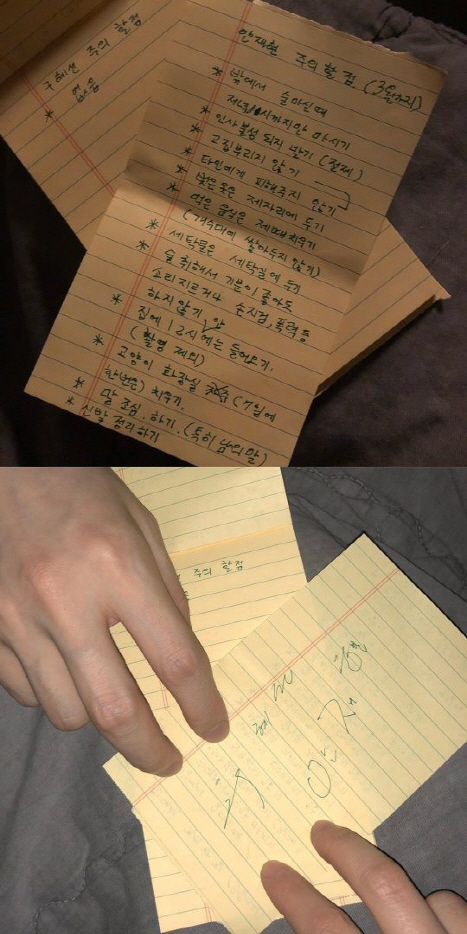 구혜선 주의 할점
* 없음
안재현 주의 할 점 (3월까지)
* 밖에서 술마실때
저녁 시까지만 마시기
* 인사불성 되지 않기 (절제)
* 고집부리지 않기
* 타인에게 피해주지 않기
* 벗은옷은 제자리에 두기
* 먹은 음식은 제때치우기
(개수대에 쌓아두지 않기)
* 세탁물은 세탁실에 두기
* 술 취해서 기분이 좋아도
소리지르거나 손지검, 폭력 등
하지않기
* 집에 12시 안에는 들어오기.
(촬영 제외)
* 고양이 화장실 (7일에
한번은) 치우기.
* 말 조심. 하기. (특히 남의말)
* 신발 정리하기
주의 할점
구혜선
안재현